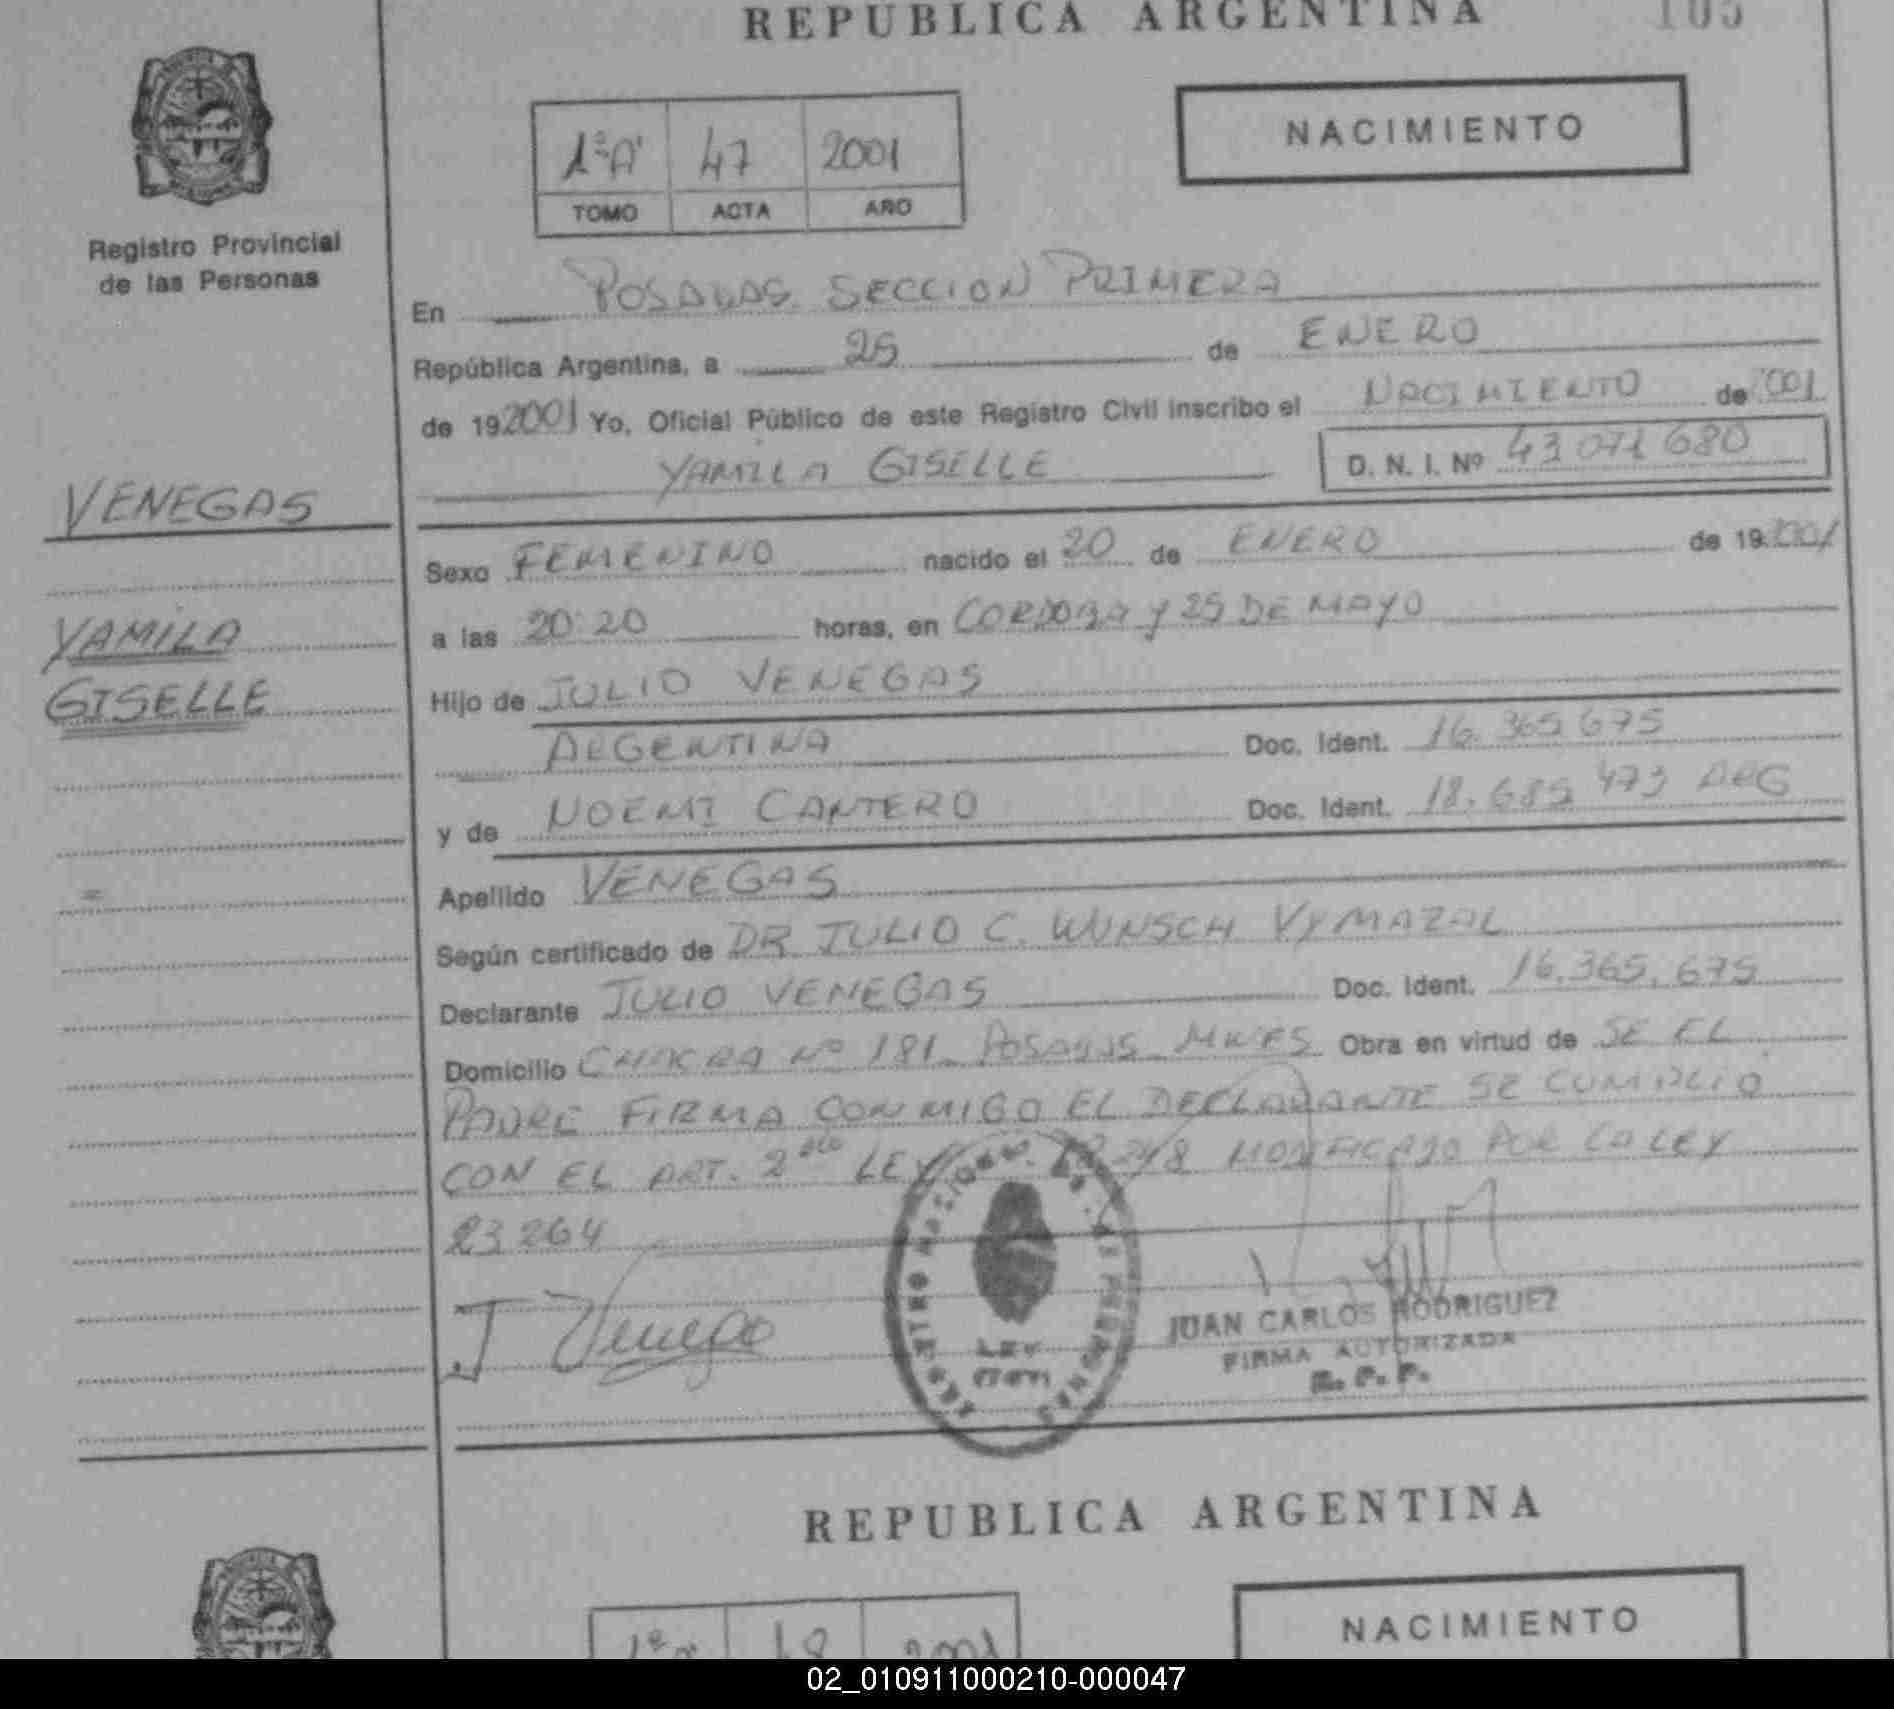 REPUBLICA ARGENTINA
105
NACIMIENTO
1ºA' 47 2001
TOMO ACTA AÑO
Registro Provincial
de las Personas
En POSADAS SECCION PRIMERA
República Argentina, a 25 de ENERO
de 192001 Yo, Oficial Público de este Registro Civil inscribo el NACIMIENTO de 2001
YAMILA GISELLE D. N. I. Nº 43 071 680
VENEGAS
YAMILA
GISELLE
Sexo FEMENINO nacido el 20 de ENERO de 19 2001
a las 20:20 horas, en CORDOBA Y 25 DE MAYO
Hijo de JULIO VENEGAS
ARGENTINA Doc. Ident. 16.365 675
y de NOEMI CANTERO Doc. Ident. 18.685 473 ARG
Apellido VENEGAS
Según certificado de DR JULIO C. WUNSCH VYMAZAL
Declarante JULIO VENEGAS Doc. Ident. 16.365.675
Domicilio CHACRA Nº 181 POSADAS MNES Obra en virtud de SE EL
PADRE FIRMA CONMIGO EL DECLARANTE SE CUMPLIO
CON EL ART. 2 LEY 18.248 MODIFICADO POR LA LEY
23264
J Venegas
REGISTRO NACIONAL DE LAS PERSONAS
LEY
JUAN CARLOS RODRIGUEZ
FIRMA AUTORIZADA
R. P. P.
REPUBLICA ARGENTINA
NACIMIENTO
48 2001
02_010911000210-000047